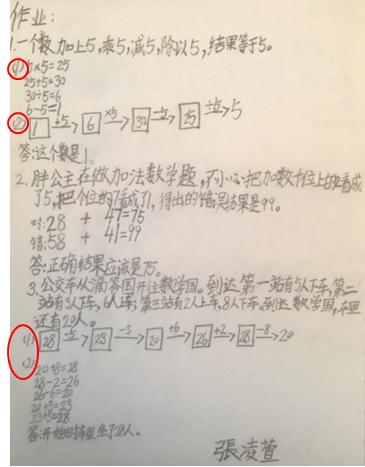 作业:
1.一个数,加上5,乘5,减5,除以5,结果等于5。
(1) 5×5=25
25+5=30
30÷5=6
6-5=1
(2) 1 +5→ 6 ×5→ 30 -5→ 25 ÷5→ 5
答:这个数是1。
2.胖公主在做加法数学题,不小心把加数十位上的2看成
了5,把个位的7看成了1,得出的错误结果是99。
对:28 + 47=75
错:58 + 41=99
答:正确结果应该是75。
3.公交车从滴答国开往数学国。到达第一站有5人下车,第二
站有3人下车,6人上车;第三站有2人上车,8人下车。到达数学国,车里
还有20人。
(1) 28 -5→ 23 -3→ 20 +6→ 26 +2→ 28 -8→ 20
(2)
20+8=28
28-2=26
26-6=20
20+3=23
23+5=28
答:开始时车里坐了28人。
張凌萱